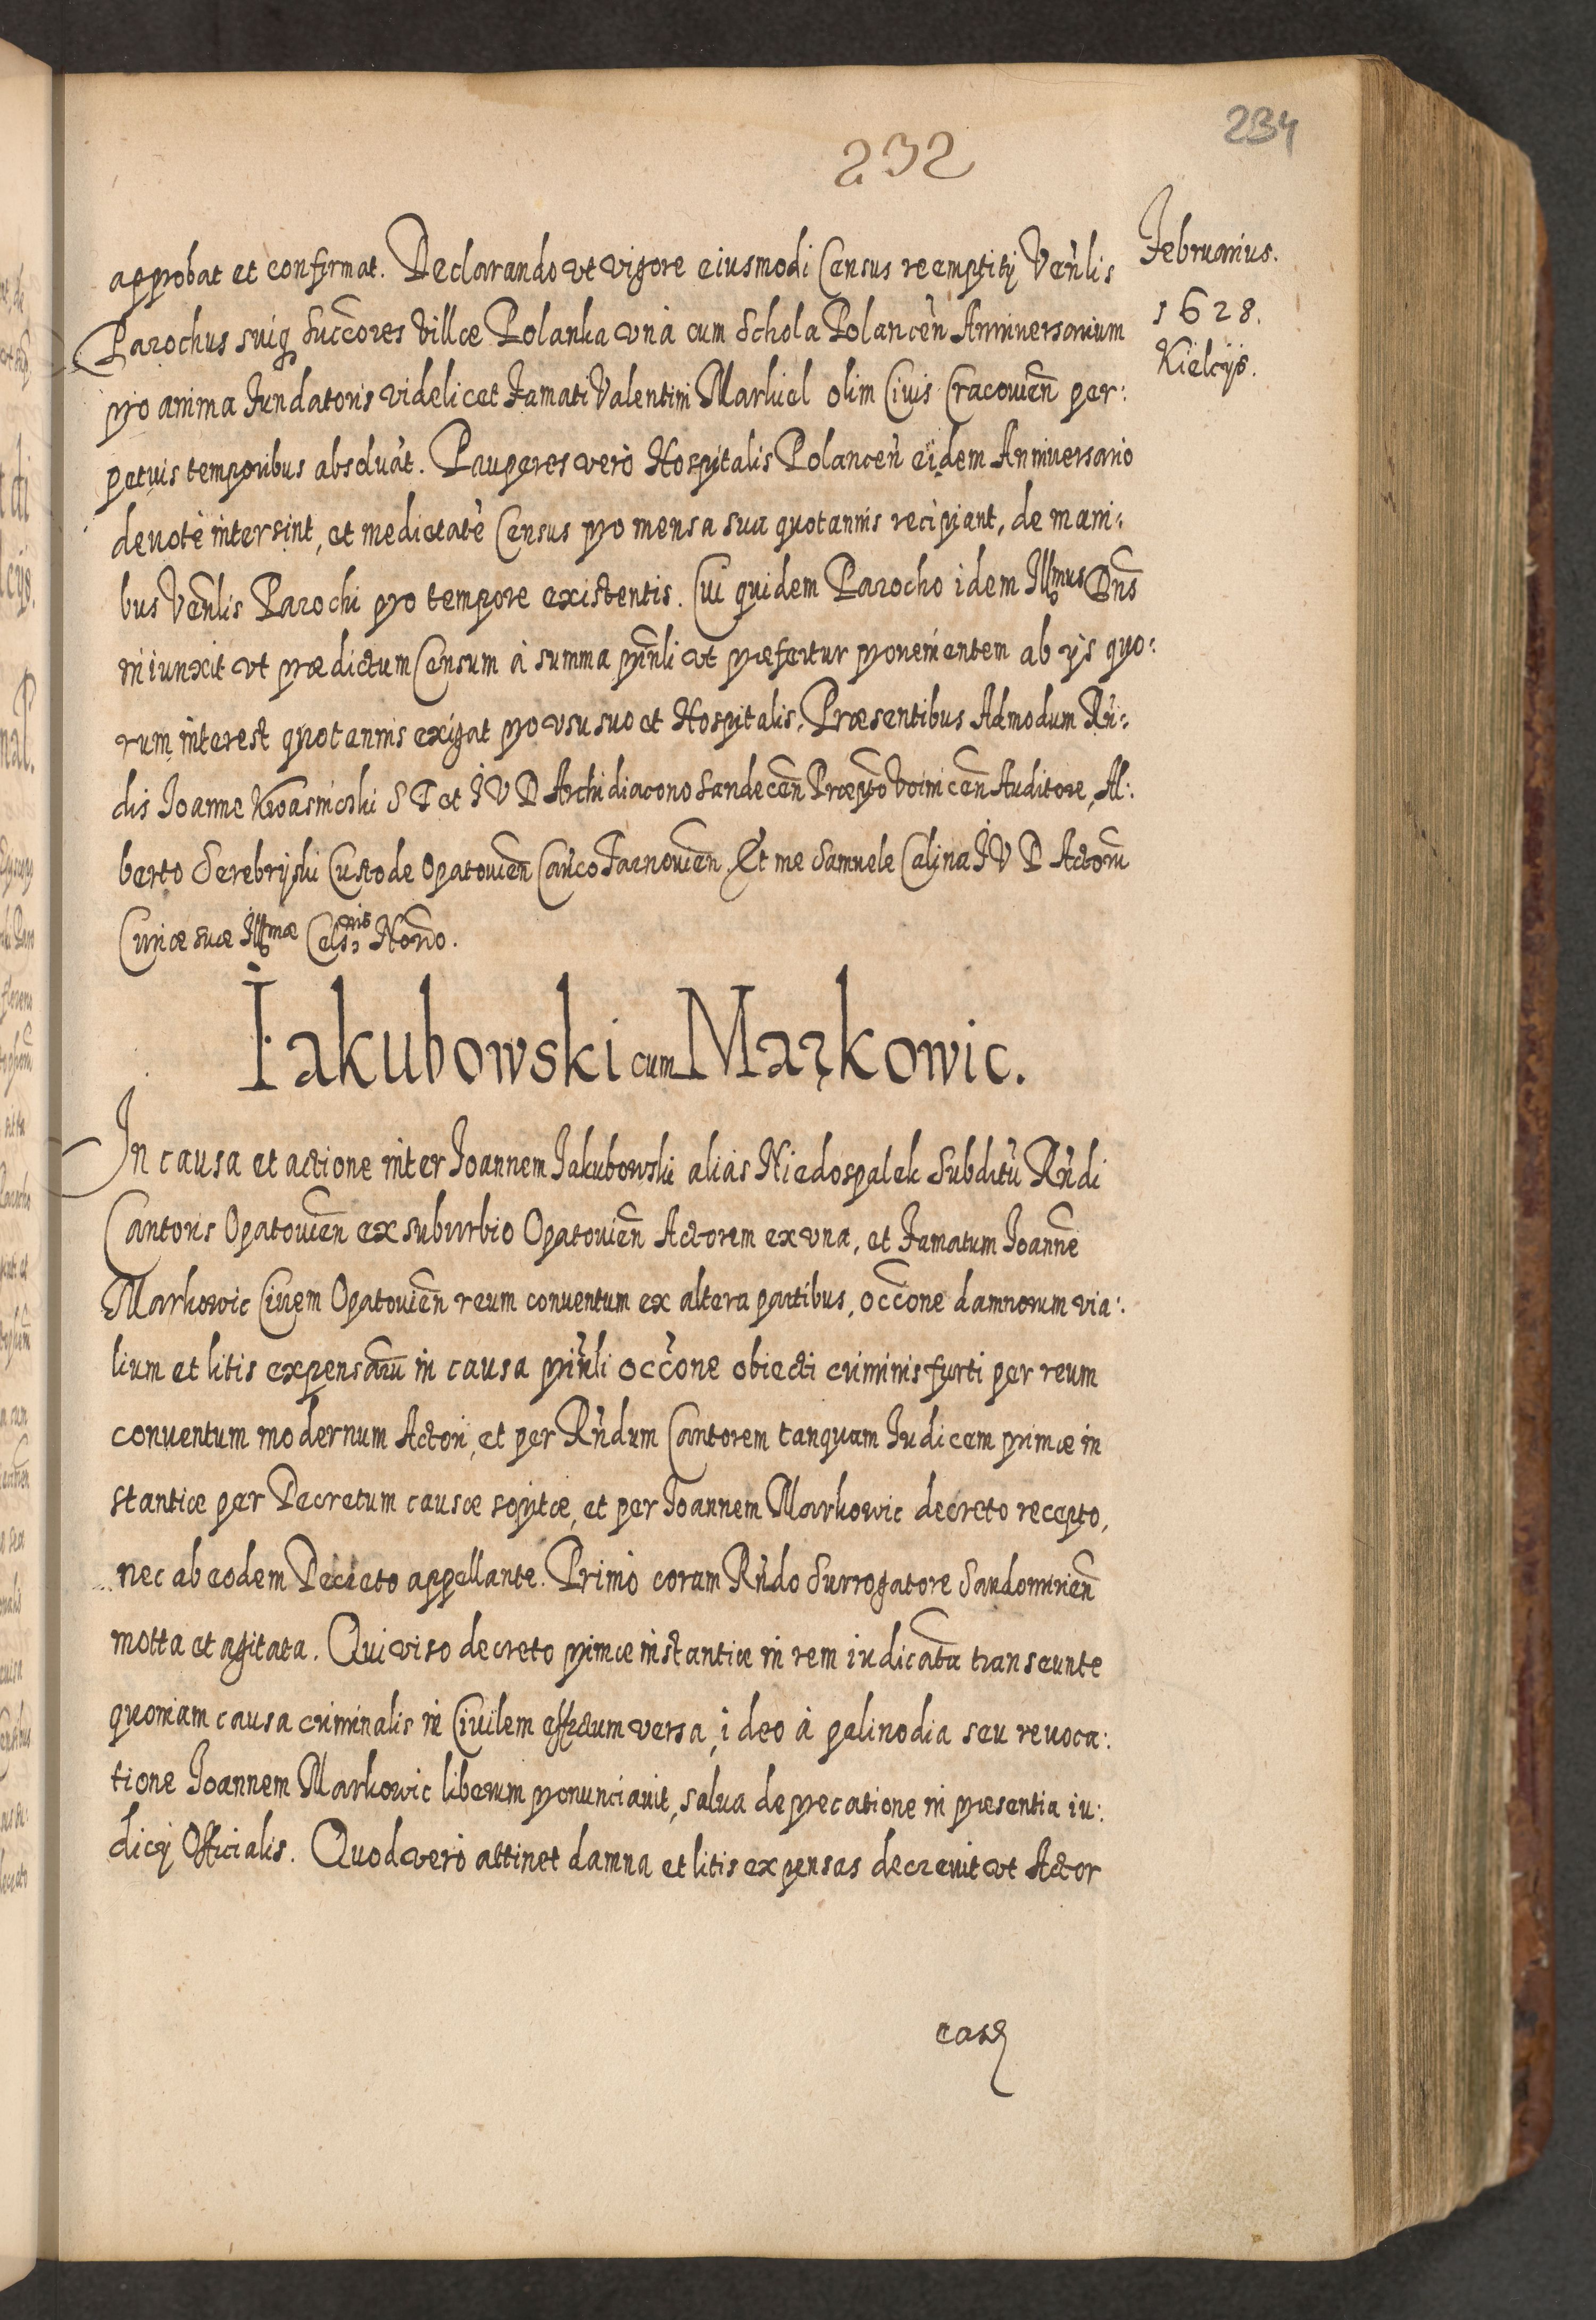 234
232
Februarius.
1628.
Kielcijs.
approbat et confirmat. Declarando vt vigore eiusmodi Census reemptitij Venlis
Parochus suiq Succores Villæ Polanka vnà cum Schola Polancen Anniuersarium
pro anima Fundatoris videlicet Famati Valentini Markiel olim Ciuis Cracouien per:
petuis temporibus absoluat. Pauperes verò Hospitalis Polancen eidem Anniuersario
deuotè intersint, et medietatē Census pro mensa sua quotannis recipiant, de mani:
bus Venlis Parochi pro tempore existentis. Cui quidem Parocho idem Illmus Dns
iniunxit vt prædictum Censum à summa prinli vt præfertur prouenientem ab ijs quo:
rum interest quotannis exigat pro vsu suo et Hospitalis. Præsentibus Admodum Rn:
dis Joanne Kwasnioski S T et I V D Archidiacono Sandecen Præpto Voinicen Auditore, Al:
berto Serebryski Custode Opatouien Canco Tarnouien. Et me Samuele Calina I V D Actorū
Curiæ suæ Illmæ Cels:nis Norio.
Iakubowski cum Markowic.
In causa et actione inter Joannem Jakubowski alias Niedospalek Subditū Rndi
Cantoris Opatouien ex suburbio Opatouien Actorem ex vna, et Famatum Joannē
Markowic Ciuem Opatouien reum conuentum ex altera partibus, occone damnorum via:
lium et litis expensarū in causa prinli occone obiecti criminis furti per reum
conuentum modernum Actori, et per Rndum Cantorem tanquam Iudicem primæ in
stantiæ per Decretum causæ sopitæ, et per Joannem Markowic decreto recepto,
nec ab eodem Decreto appellante. Primò coram Rndo Surrogatore Sandomirien
motta et agitata. Qui viso decreto primæ instantiæ in rem iudicatā transeunte
quoniam causa criminalis in Ciuilem effectum versa, ideo à palinodia seu reuoca:
tione Joannem Markowic liberum pronunciauit, salua deprecatione in præsentia iu:
dicij Officialis. Quod verò attinet damna et litis expensas decreuit vt Actor